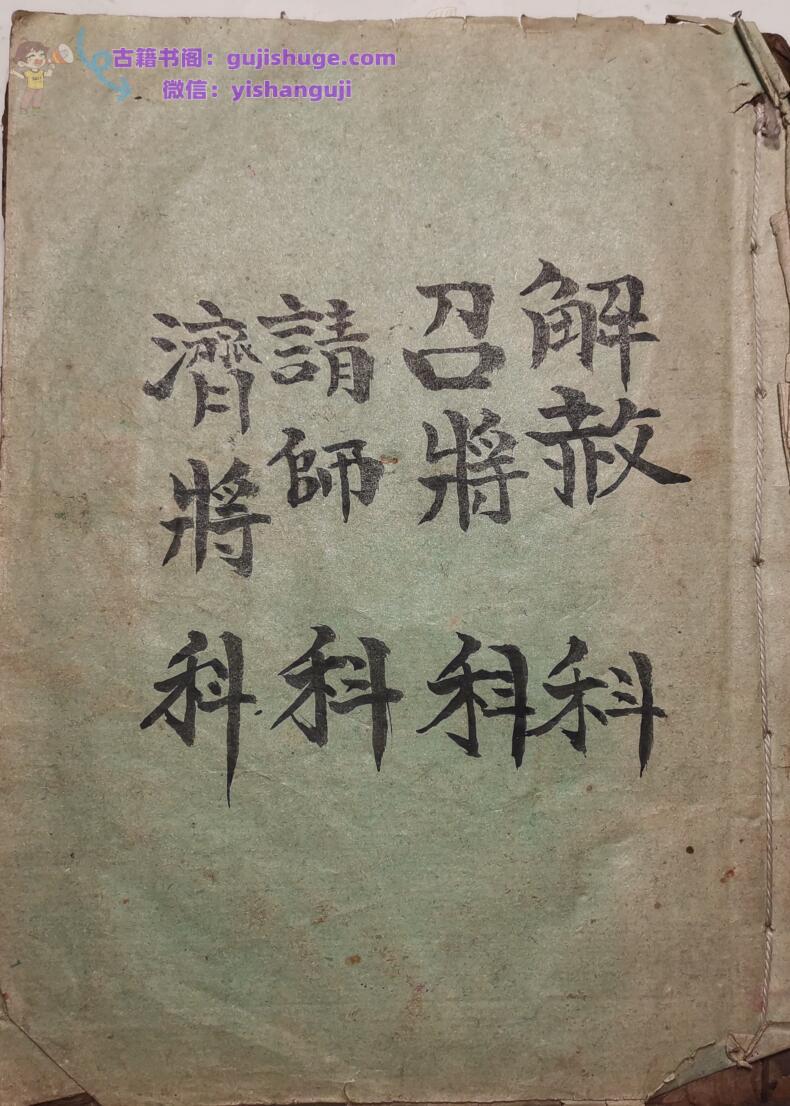 古籍书阁：gujishuge.com
微信：yishanguji
解赦科
召將科
請師科
濟將科